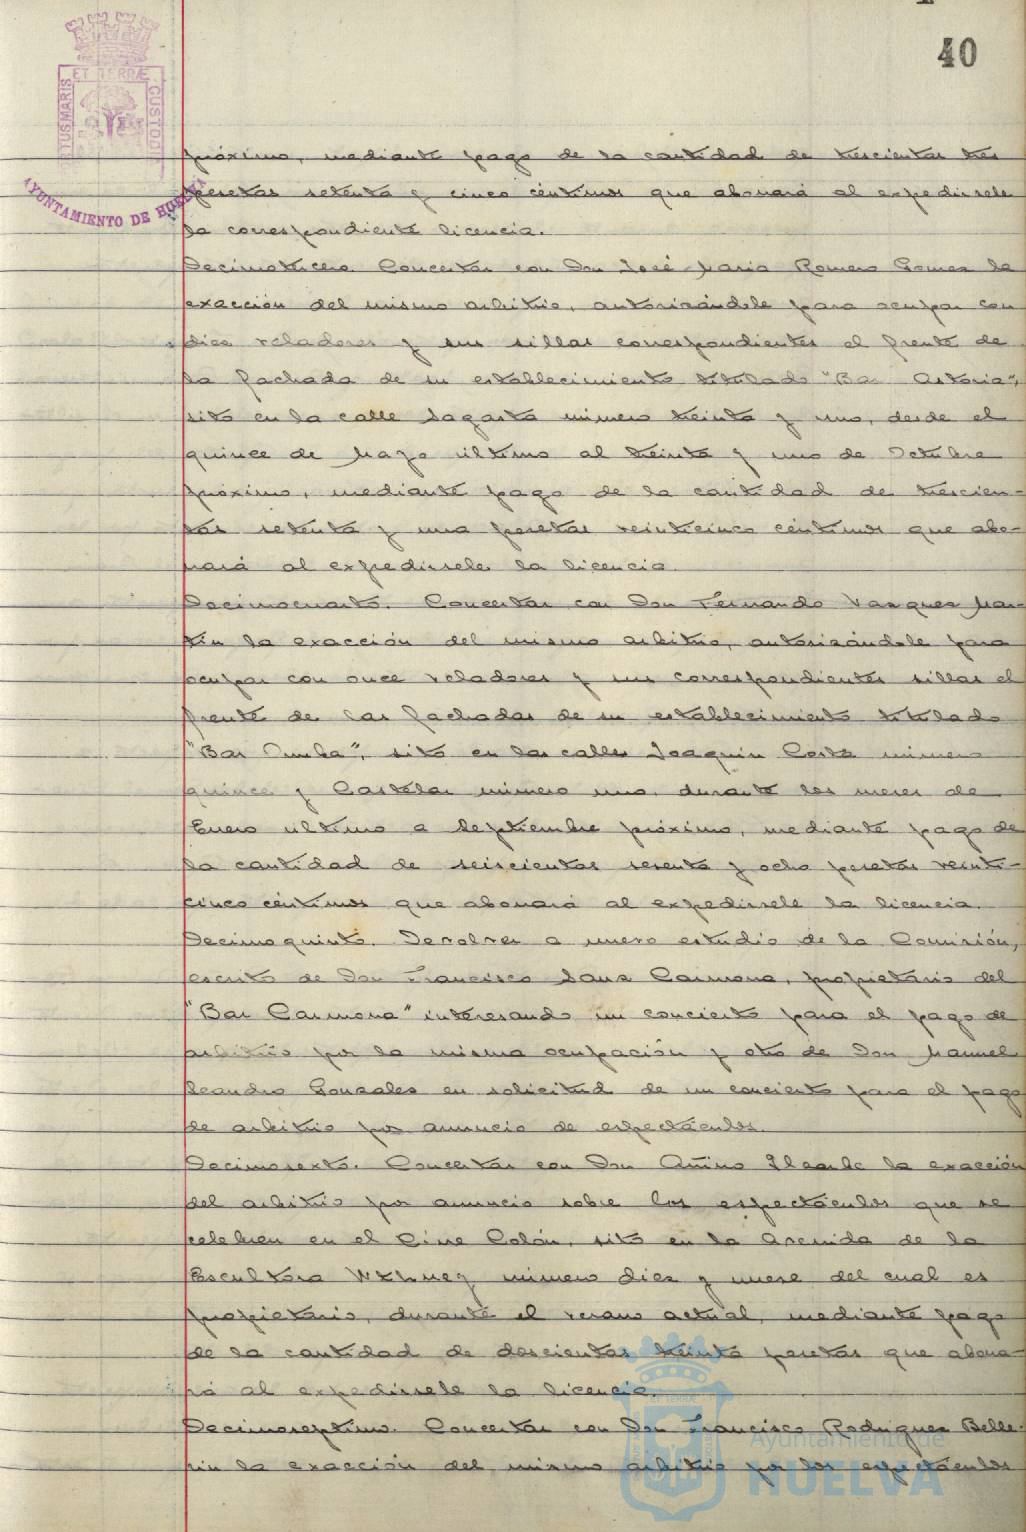 40
ET TERRÆ
CUSTODI
AYUNTAMIENTO DE HUELVA
próximo, mediante pago de la cantidad de trescientas tres
pesetas setenta y cinco céntimos que abonará al expedírsele
la correspondiente licencia.
Decimotercero. Concertar con Don José María Romero Gomez la
exacción del mismo arbitrio, autorizándole para ocupar con
diez veladores y sus sillas correspondientes el frente de
la fachada de su establecimiento titulado "Bar Astoria",
sito en la calle Sagasta número treinta y uno, desde el
quince de Mayo último al treinta y uno de Octubre
próximo, mediante pago de la cantidad de trescien-
tas setenta y una pesetas veinticinco céntimos que abo-
nará al expedírsele la licencia.
Decimocuarto. Concertar con Don Fernando Vazquez Mar-
tín la exacción del mismo arbitrio, autorizándole para
ocupar con once veladores y sus correspondientes sillas el
frente de las fachadas de su establecimiento titulado
"Bar Onuba", sito en las calles Joaquín Costa número
quince y Castelar número uno, durante los meses de
Enero último a Septiembre próximo, mediante pago de
la cantidad de seiscientas sesenta y ocho pesetas veinti-
cinco céntimos que abonará al expedírsele la licencia.
Decimoquinto. Devolver a nuevo estudio de la Comisión,
escrito de Don Francisco Sanz Carmona, propietario del
"Bar Carmona" interesando un concierto para el pago de
arbitrio por la misma ocupación y otro de Don Manuel
Leandro Gonzales en solicitud de un concierto para el pago
de arbitrio por anuncio de espectáculos.
Decimosexto. Concertar con Don la exacción
del arbitrio por anuncio sobre los espectáculos que se
celebren en el Cine Colón, sito en la Avenida de la
Escultora número diez y nueve del cual es
propietario, durante el verano actual, mediante pago
de la cantidad de doscientas treinta pesetas que abona-
rá al expedírsele la licencia.
Decimoseptimo. Concertar con Don Francisco Rodriguez Belle-
rin la exacción del mismo arbitrio por los espectáculos
Ayuntamiento de
HUELVA